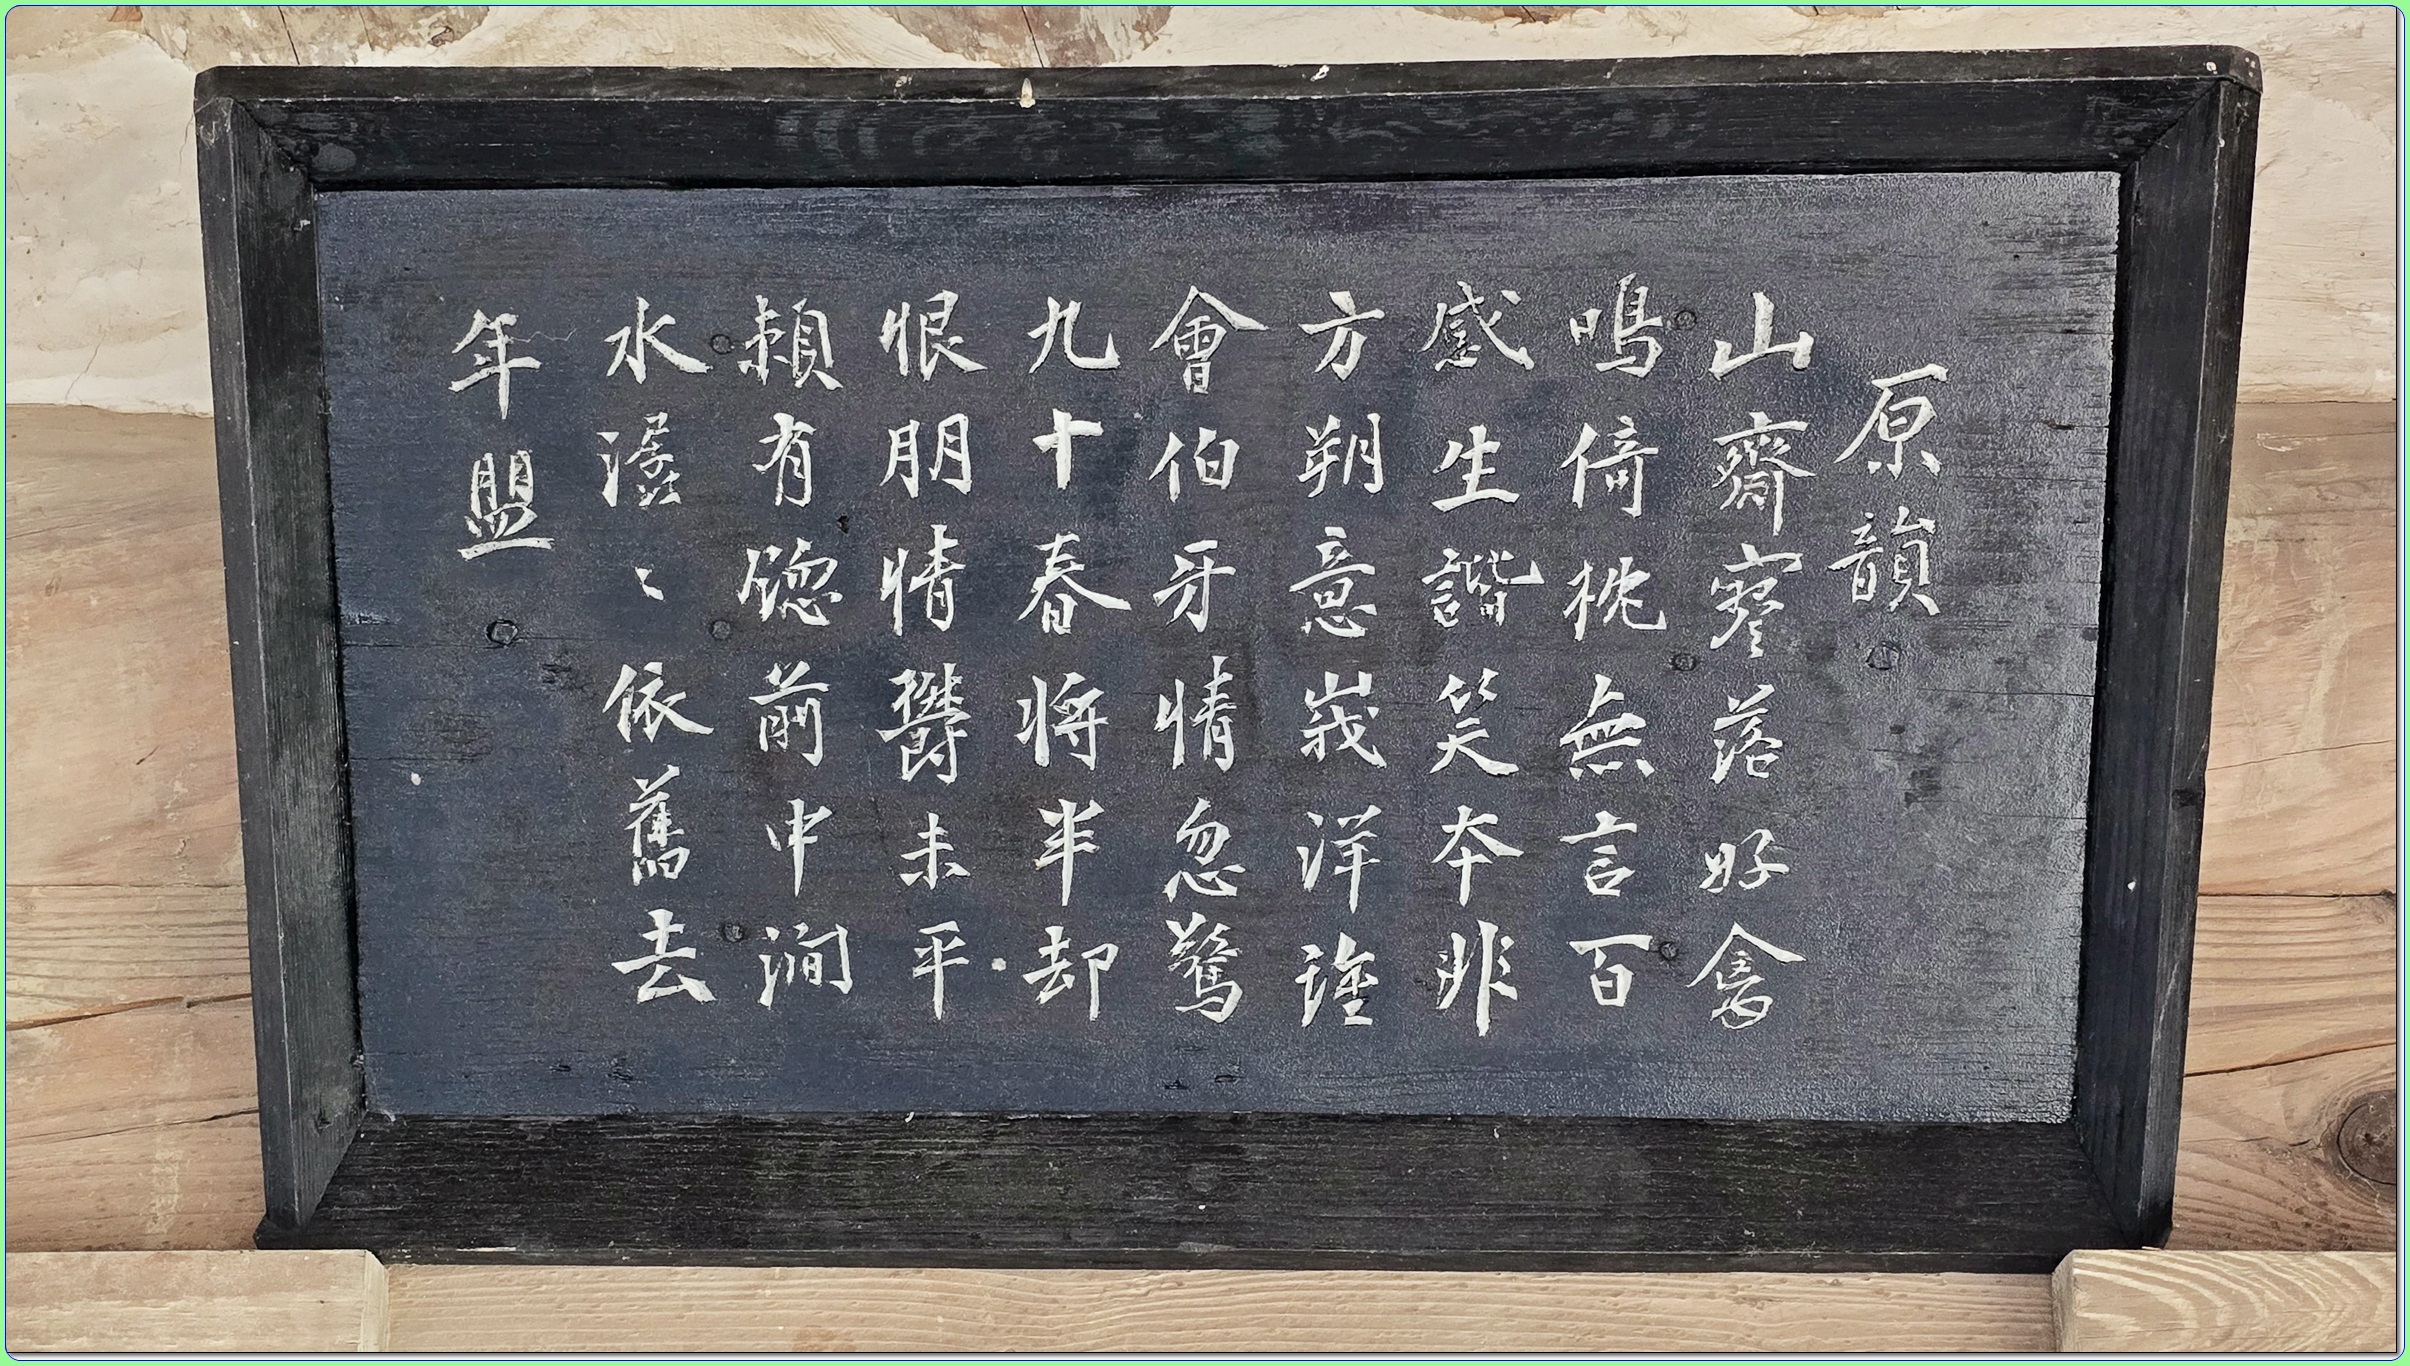 原韻
山齋寥落好禽
鳴倚枕無言百
感生諧笑夲非
方朔意峩洋誰
會伯牙情忽驚
九十春將半却
恨朋情鬱未平
頼有牎前中澗
水潺〻依舊去
年盟